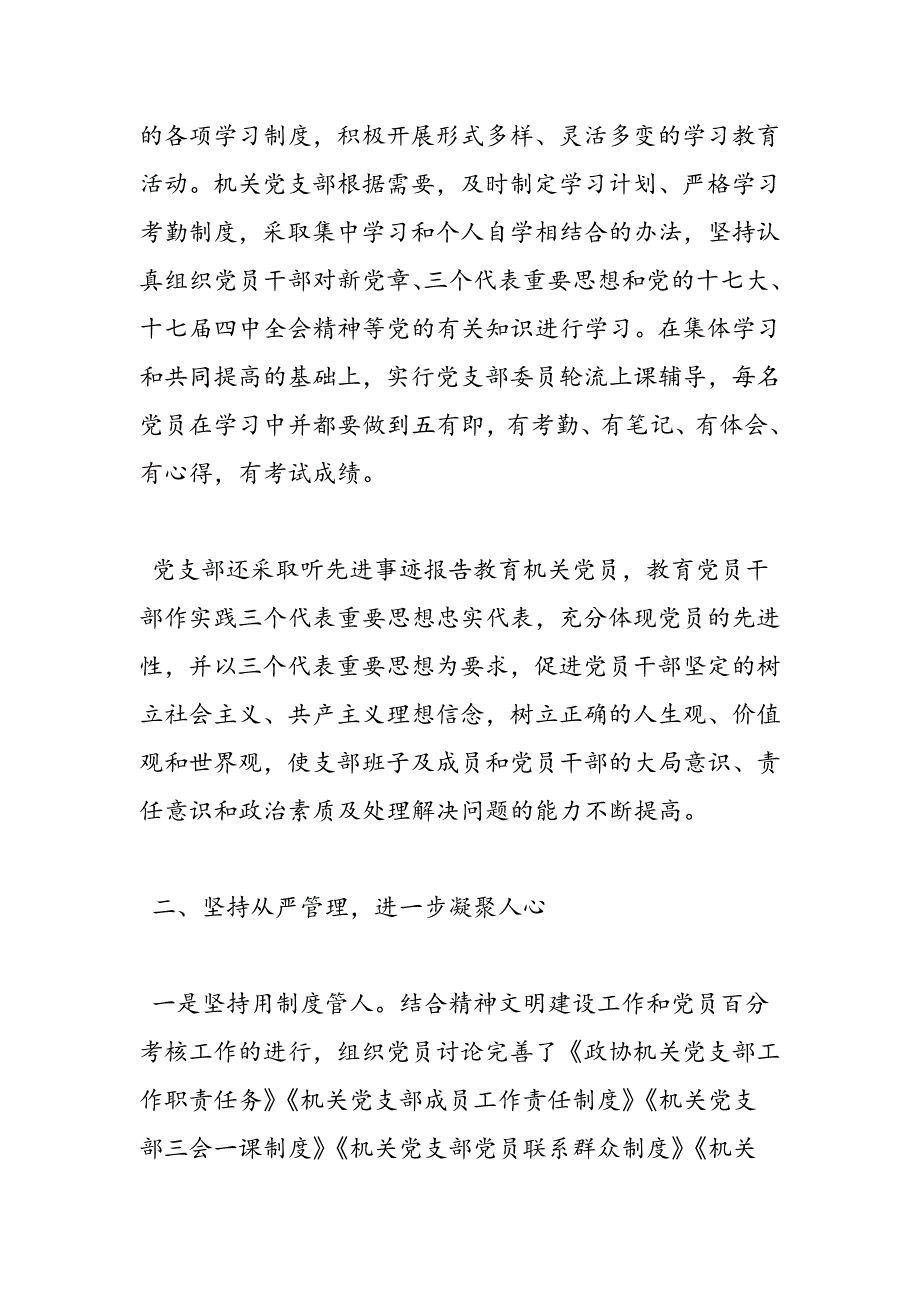 的各项学习制度，积极开展形式多样、灵活多变的学习教育
活动。机关党支部根据需要，及时制定学习计划、严格学习
考勤制度，采取集中学习和个人自学相结合的办法，坚持认
真组织党员干部对新党章、三个代表重要思想和党的十七大、
十七届四中全会精神等党的有关知识进行学习。在集体学习
和共同提高的基础上，实行党支部委员轮流上课辅导，每名
党员在学习中并都要做到五有即，有考勤、有笔记、有体会、
有心得，有考试成绩。
党支部还采取听先进事迹报告教育机关党员，教育党员干
部作实践三个代表重要思想忠实代表，充分体现党员的先进
性，并以三个代表重要思想为要求，促进党员干部坚定的树
立社会主义、共产主义理想信念，树立正确的人生观、价值
观和世界观，使支部班子及成员和党员干部的大局意识、责
任意识和政治素质及处理解决问题的能力不断提高。
二、坚持从严管理，进一步凝聚人心
一是坚持用制度管人。结合精神文明建设工作和党员百分
考核工作的进行，组织党员讨论完善了《政协机关党支部工
作职责任务》《机关党支部成员工作责任制度》《机关党支
部三会一课制度》《机关党支部党员联系群众制度》《机关